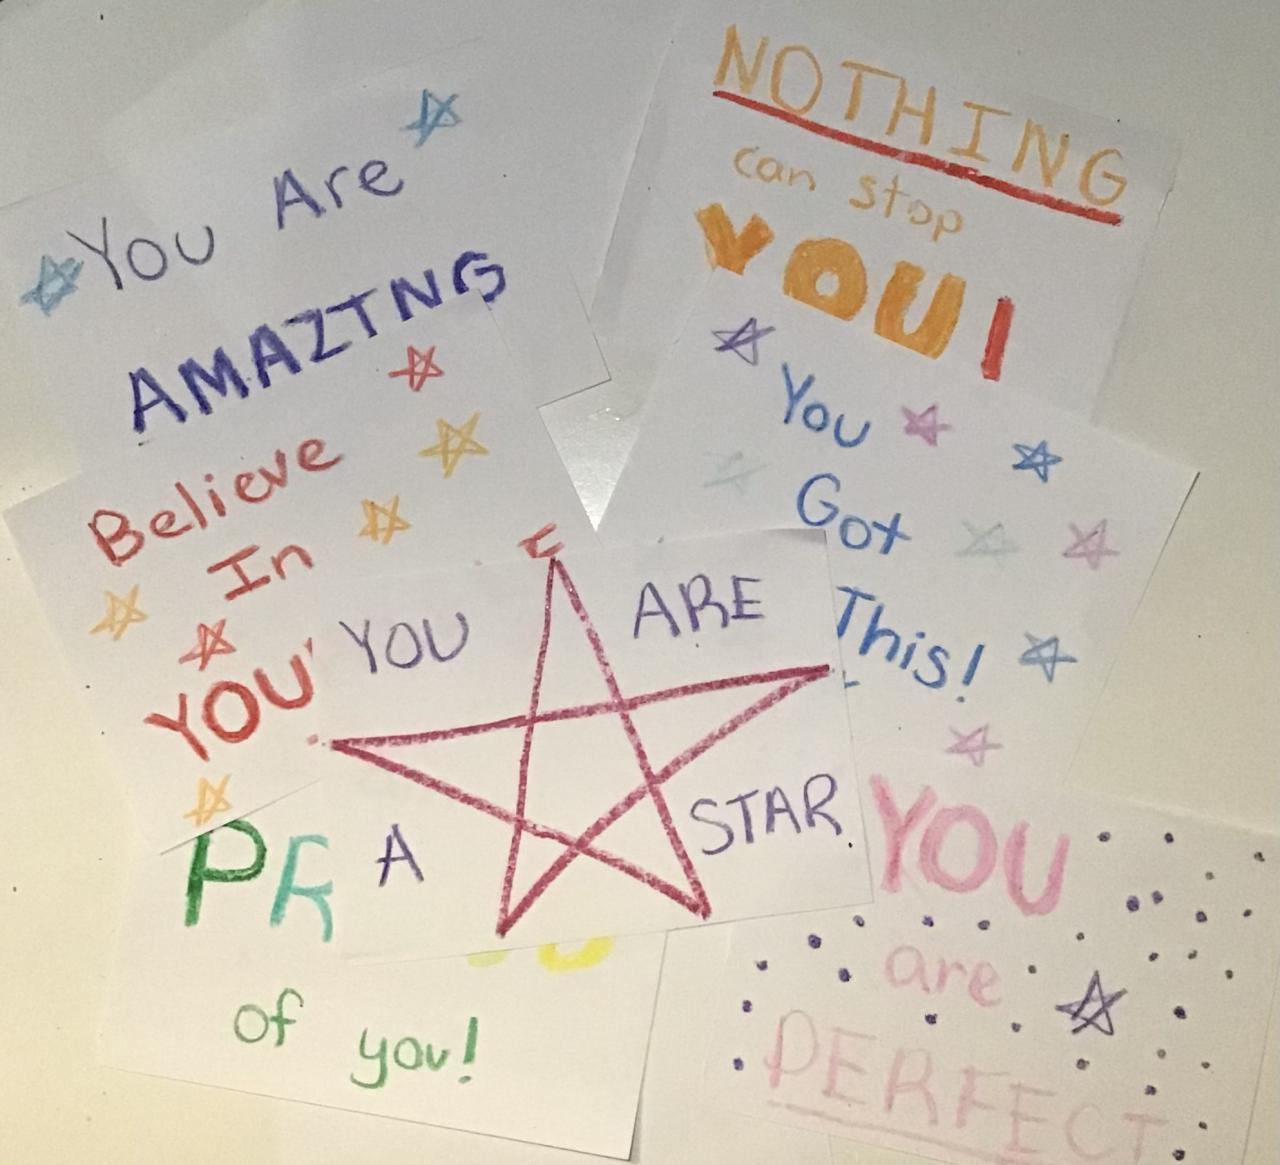 You Are
AMAZING
NOTHING
can stop
YOU!
Believe
In
YOU
You
Got
This!
YOU ARE
A STAR
PR
of you!
YOU
are
PERFECT